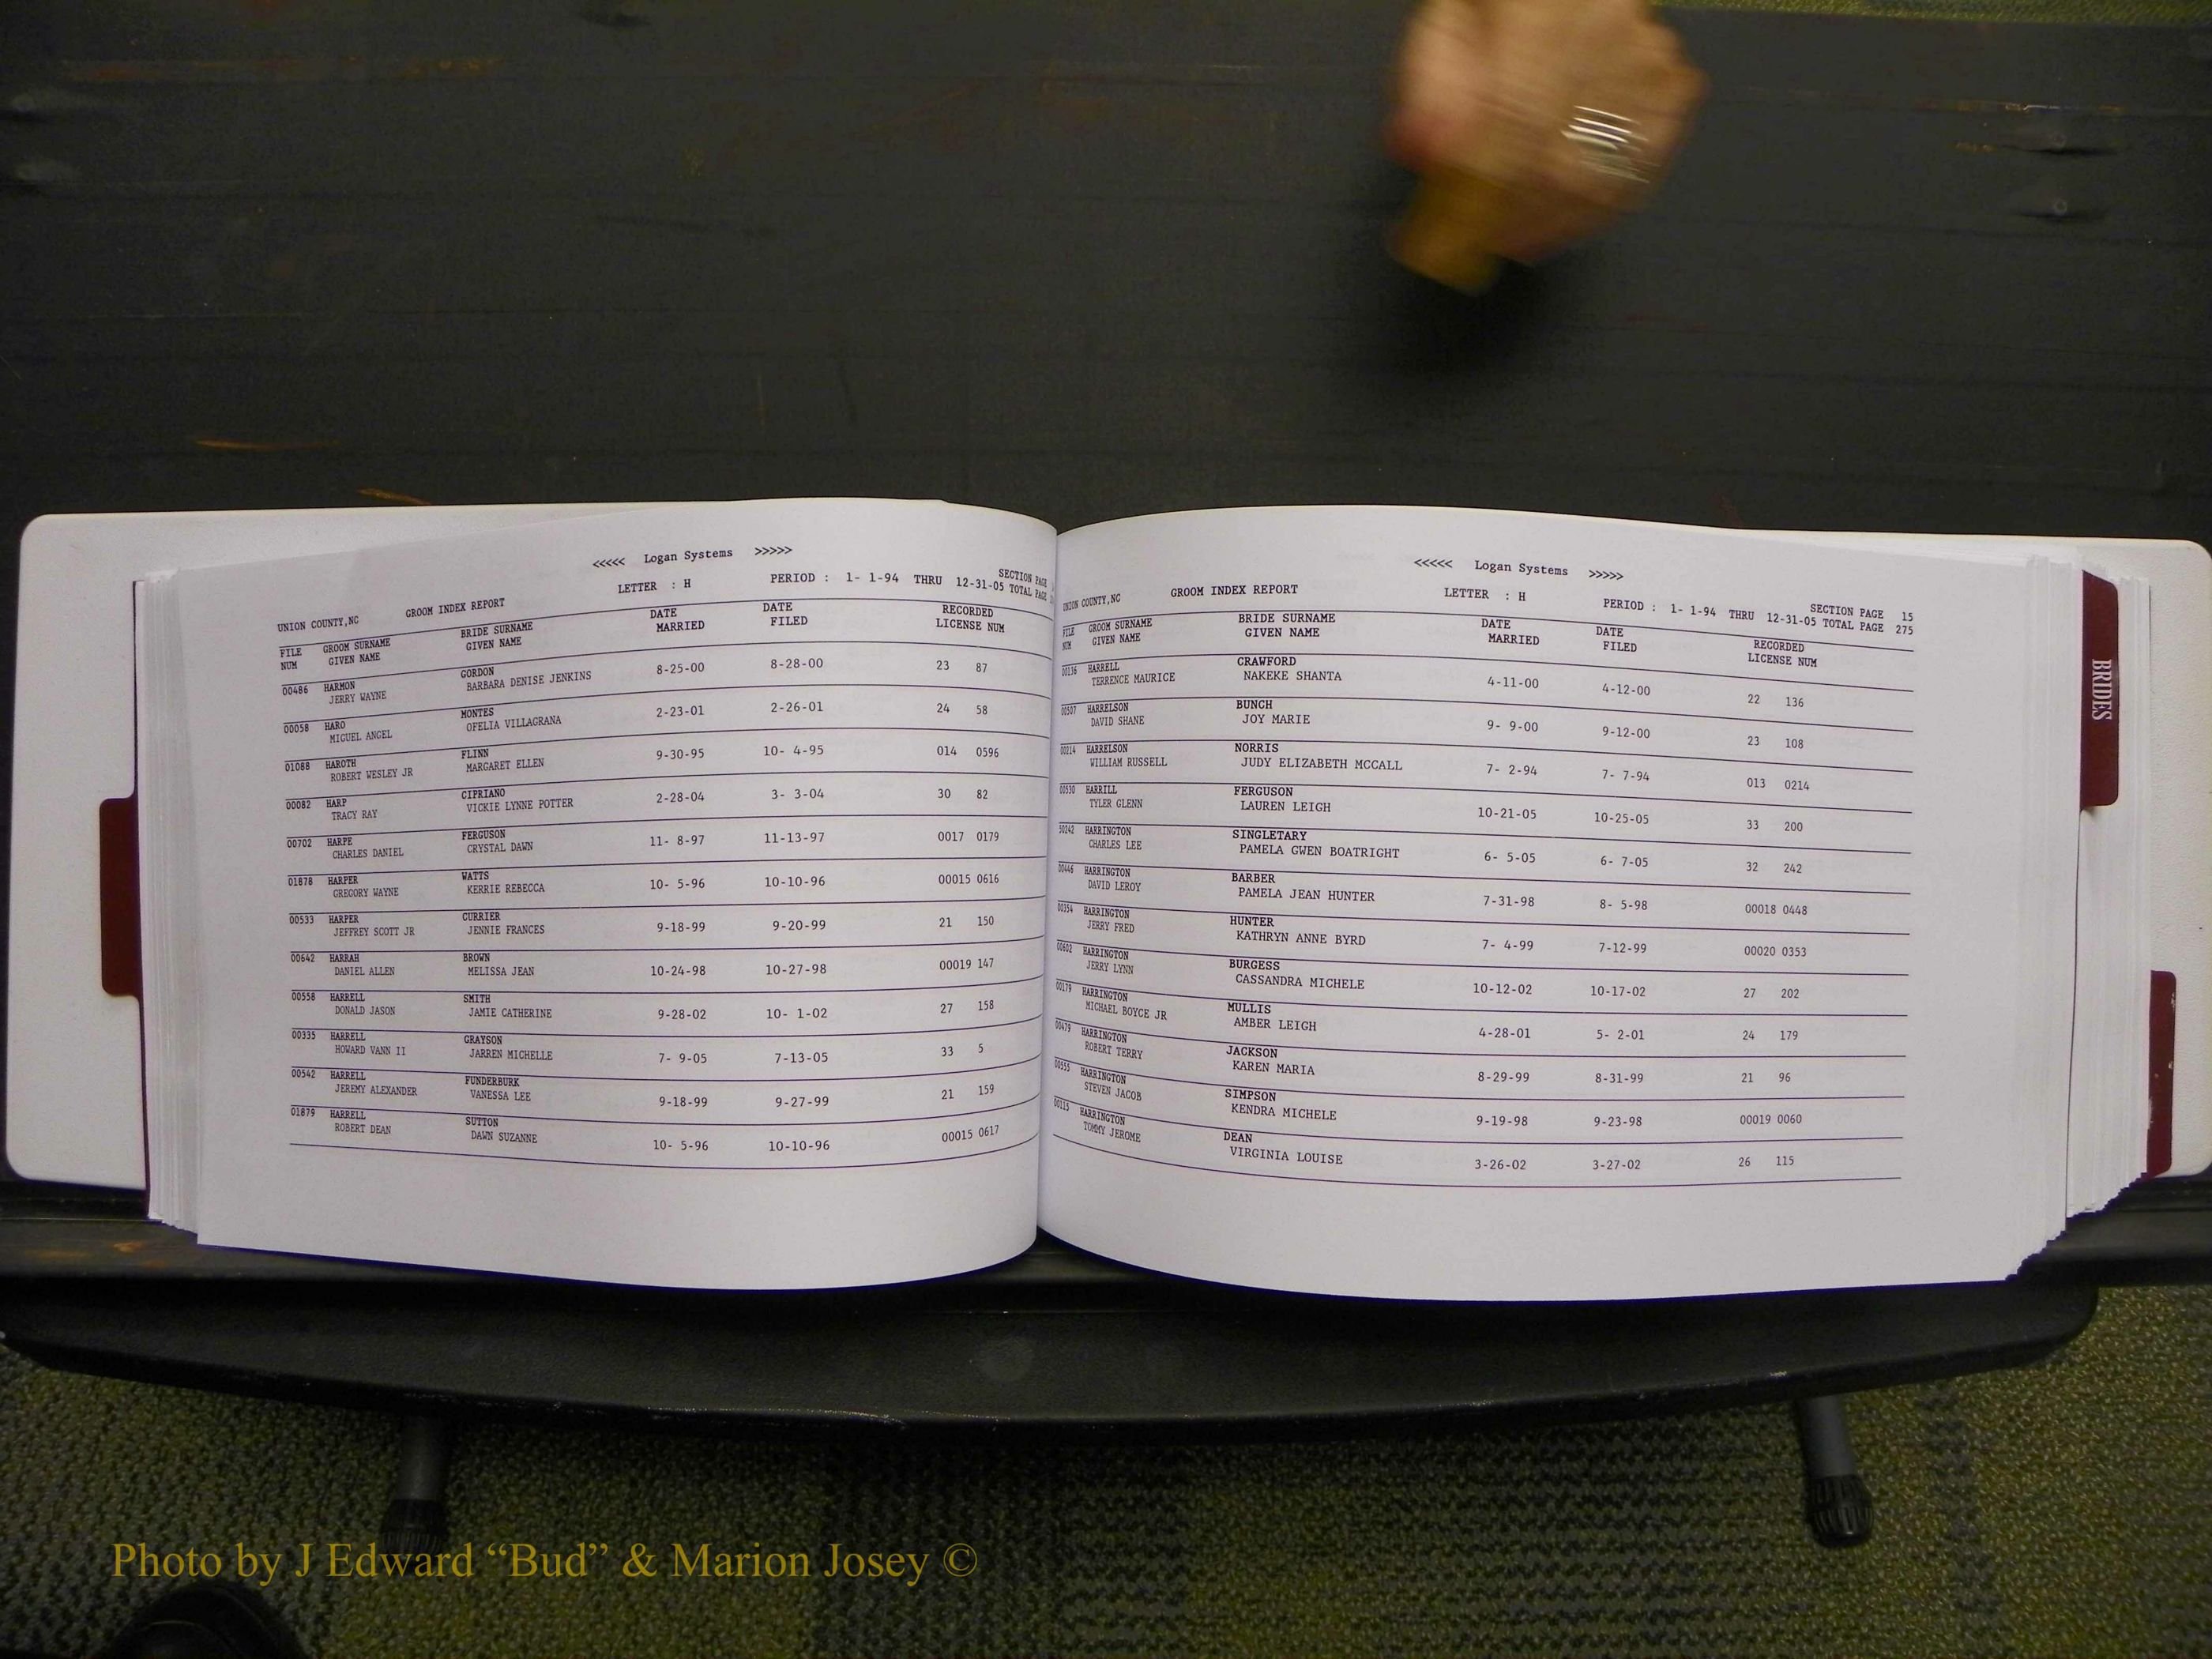 <<<<< Logan Systems >>>>>
UNION COUNTY,NC GROOM INDEX REPORT LETTER : H PERIOD : 1- 1-94 THRU 12-31-05 SECTION PAGE
TOTAL PAGE
FILE GROOM SURNAME BRIDE SURNAME DATE DATE RECORDED
NUM GIVEN NAME GIVEN NAME MARRIED FILED LICENSE NUM
00486 HARMON GORDON 8-25-00 8-28-00 23 87
JERRY WAYNE BARBARA DENISE JENKINS
00058 HARO MONTES 2-23-01 2-26-01 24 58
MIGUEL ANGEL OFELIA VILLAGRANA
01088 HAROTH FLINN 9-30-95 10- 4-95 014 0596
ROBERT WESLEY JR MARGARET ELLEN
00082 HARP CIPRIANO 2-28-04 3- 3-04 30 82
TRACY RAY VICKIE LYNNE POTTER
00702 HARPE FERGUSON 11- 8-97 11-13-97 0017 0179
CHARLES DANIEL CRYSTAL DAWN
01878 HARPER WATTS 10- 5-96 10-10-96 00015 0616
GREGORY WAYNE KERRIE REBECCA
00533 HARPER CURRIER 9-18-99 9-20-99 21 150
JEFFREY SCOTT JR JENNIE FRANCES
00642 HARRAH BROWN 10-24-98 10-27-98 00019 147
DANIEL ALLEN MELISSA JEAN
00558 HARRELL SMITH 9-28-02 10- 1-02 27 158
DONALD JASON JAMIE CATHERINE
00335 HARRELL GRAYSON 7- 9-05 7-13-05 33 5
HOWARD VANN II JARREN MICHELLE
00542 HARRELL FUNDERBURK 9-18-99 9-27-99 21 159
JEREMY ALEXANDER VANESSA LEE
01879 HARRELL SUTTON 10- 5-96 10-10-96 00015 0617
ROBERT DEAN DAWN SUZANNE
<<<<< Logan Systems >>>>>
UNION COUNTY,NC GROOM INDEX REPORT LETTER : H PERIOD : 1- 1-94 THRU 12-31-05 SECTION PAGE 15
TOTAL PAGE 275
FILE GROOM SURNAME BRIDE SURNAME DATE DATE RECORDED
NUM GIVEN NAME GIVEN NAME MARRIED FILED LICENSE NUM
00136 HARRELL CRAWFORD 4-11-00 4-12-00 22 136
TERRENCE MAURICE NAKEKE SHANTA
00507 HARRELSON BUNCH 9- 9-00 9-12-00 23 108
DAVID SHANE JOY MARIE
00214 HARRELSON NORRIS 7- 2-94 7- 7-94 013 0214
WILLIAM RUSSELL JUDY ELIZABETH MCCALL
00530 HARRILL FERGUSON 10-21-05 10-25-05 33 200
TYLER GLENN LAUREN LEIGH
50242 HARRINGTON SINGLETARY 6- 5-05 6- 7-05 32 242
CHARLES LEE PAMELA GWEN BOATRIGHT
00446 HARRINGTON BARBER 7-31-98 8- 5-98 00018 0448
DAVID LEROY PAMELA JEAN HUNTER
00354 HARRINGTON HUNTER 7- 4-99 7-12-99 00020 0353
JERRY FRED KATHRYN ANNE BYRD
00602 HARRINGTON BURGESS 10-12-02 10-17-02 27 202
JERRY LYNN CASSANDRA MICHELE
00179 HARRINGTON MULLIS 4-28-01 5- 2-01 24 179
MICHAEL BOYCE JR AMBER LEIGH
00479 HARRINGTON JACKSON 8-29-99 8-31-99 21 96
ROBERT TERRY KAREN MARIA
00555 HARRINGTON SIMPSON 9-19-98 9-23-98 00019 0060
STEVEN JACOB KENDRA MICHELE
00115 HARRINGTON DEAN 3-26-02 3-27-02 26 115
TOMMY JEROME VIRGINIA LOUISE
BRIDES
Photo by J Edward “Bud” & Marion Josey ©